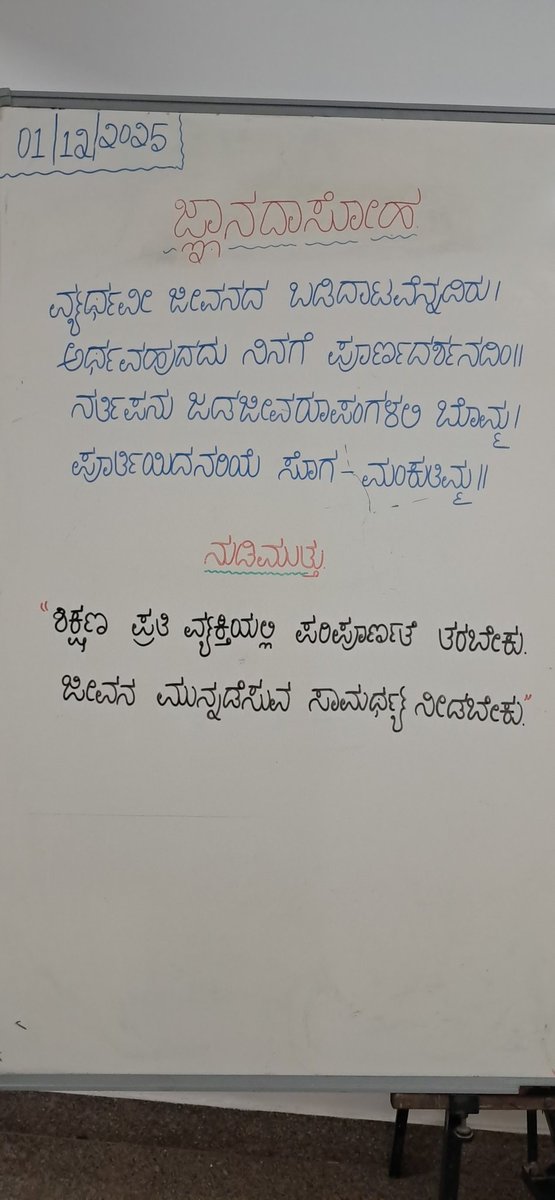 01/12/2025
ಜ್ಞಾನದಾಸೋಹ
ವ್ಯರ್ಥವೀ ಜೀವನದ ಬಡಿದಾಟವೆನ್ನದಿರು।
ಅರ್ಥವಹುದದು ನಿನಗೆ ಪೂರ್ಣದರ್ಶನದಿಂ॥
ನರ್ತಿಪನು ಜಡಜೀವರೂಪಂಗಳಲಿ ಬೊಮ್ಮ।
ಪೂರ್ತಿಯಿದನರಿಯೆ ಸೊಗ - ಮಂಕುತಿಮ್ಮ॥
ನುಡಿಮುತ್ತು
“ಶಿಕ್ಷಣ ಪ್ರತಿ ವ್ಯಕ್ತಿಯಲ್ಲಿ ಪರಿಪೂರ್ಣತೆ ತರಬೇಕು.
ಜೀವನ ಮುನ್ನಡೆಸುವ ಸಾಮರ್ಥ್ಯ ನೀಡಬೇಕು.”